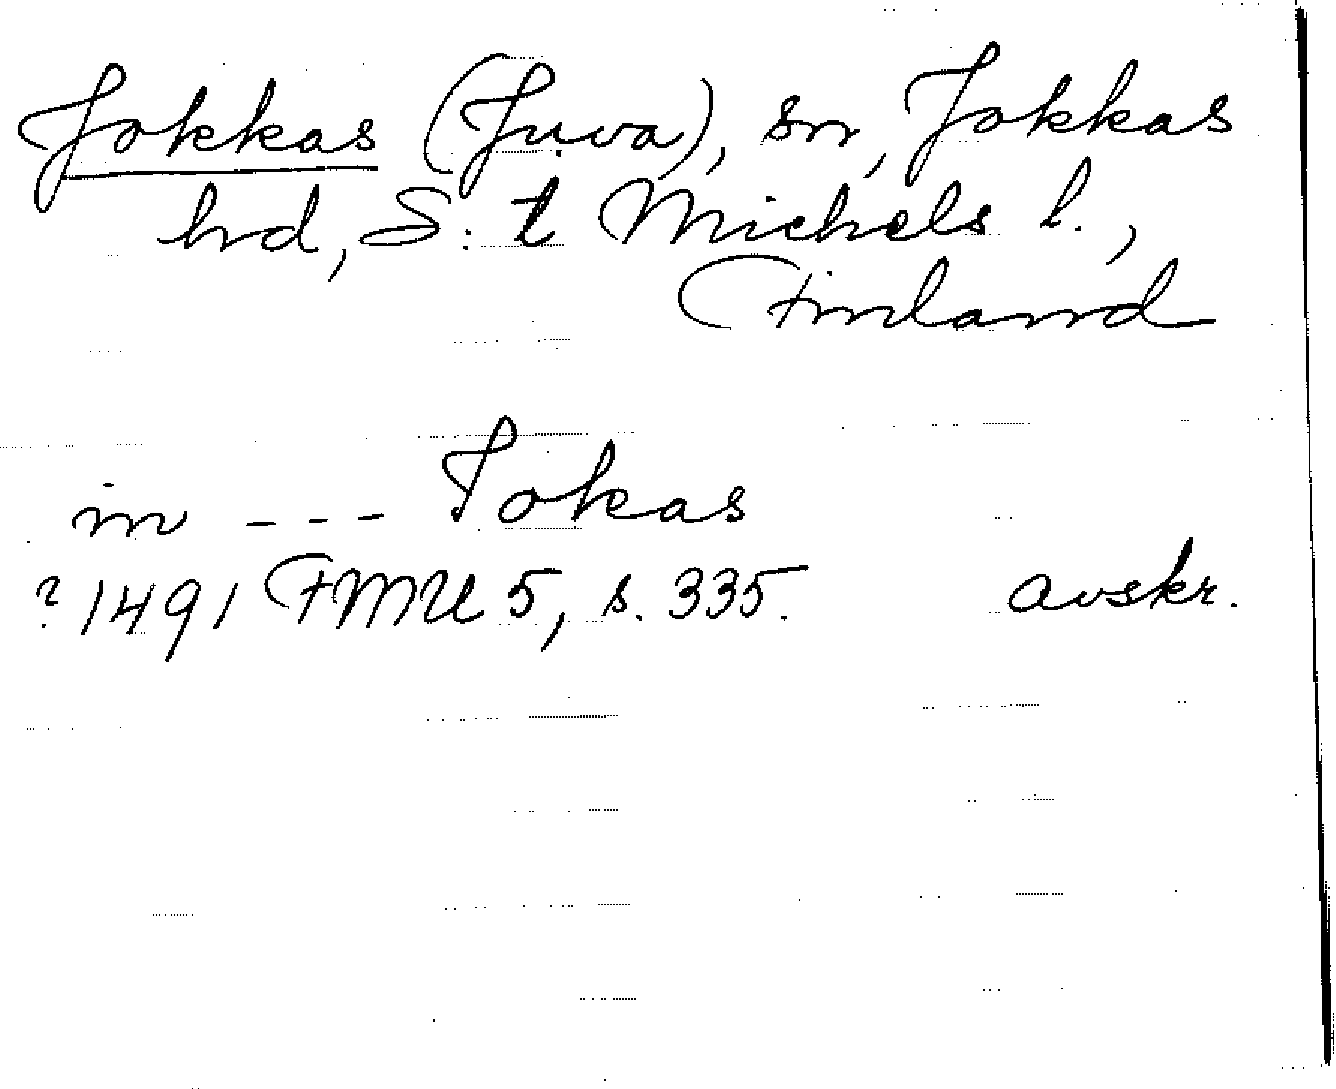 Jokkas (Juva), sn, Jokkas
hd, S:t Michels l.,
Finland
in --- Jokas
? 1491 FMU 5, s. 335. avskr.